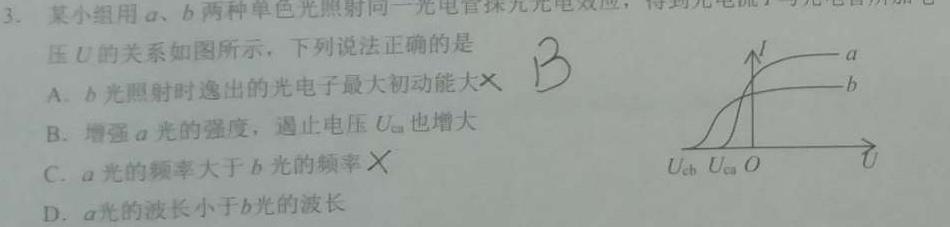 3. 某小组用 a、b 两种单色光照射同一光电管探究光电效应，得到光电流 I 与光电管所加电
压 U 的关系如图所示，下列说法正确的是
A. b 光照射时逸出的光电子最大初动能大 ×
B
B. 增强 a 光的强度，遏止电压 Uca 也增大
C. a 光的频率大于 b 光的频率 ×
D. a光的波长小于b光的波长
I
a
b
Ucb Uca O U